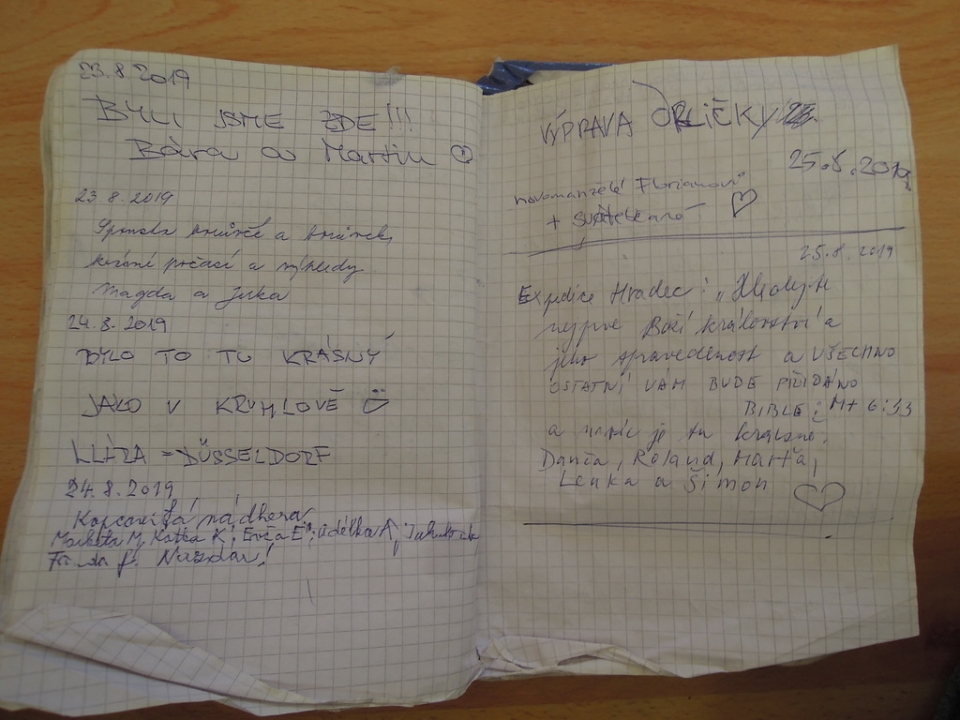 23.8.2019
BYLI JSME ZDE!!!
Bára a Martin
23.8.2019
a
počasí a výhledy
Magda a Jirka
24.8.2019
BYLO TO TU KRÁSNÝ
JAKO V KRUHLOVĚ
KLÁRA - DÜSSELDORF
24.8.2019
Kopcovitá nádhera
Markéta M, Katka K, Evča E, Adélka A,
Nazdar!
VÝPRAVA ORLIČKY
25.8.2019
novomanželé Florianovi
+
25.8.2019
Expedice Hradec: „Hledejte
nejprve Boží království a
jeho spravedlnost a VŠECHNO
OSTATNÍ VÁM BUDE PŘIDÁNO
BIBLE: Mt 6:33
a navíc je tu krásně.
Danča, Roland, Marťa,
Lenka a Šimon